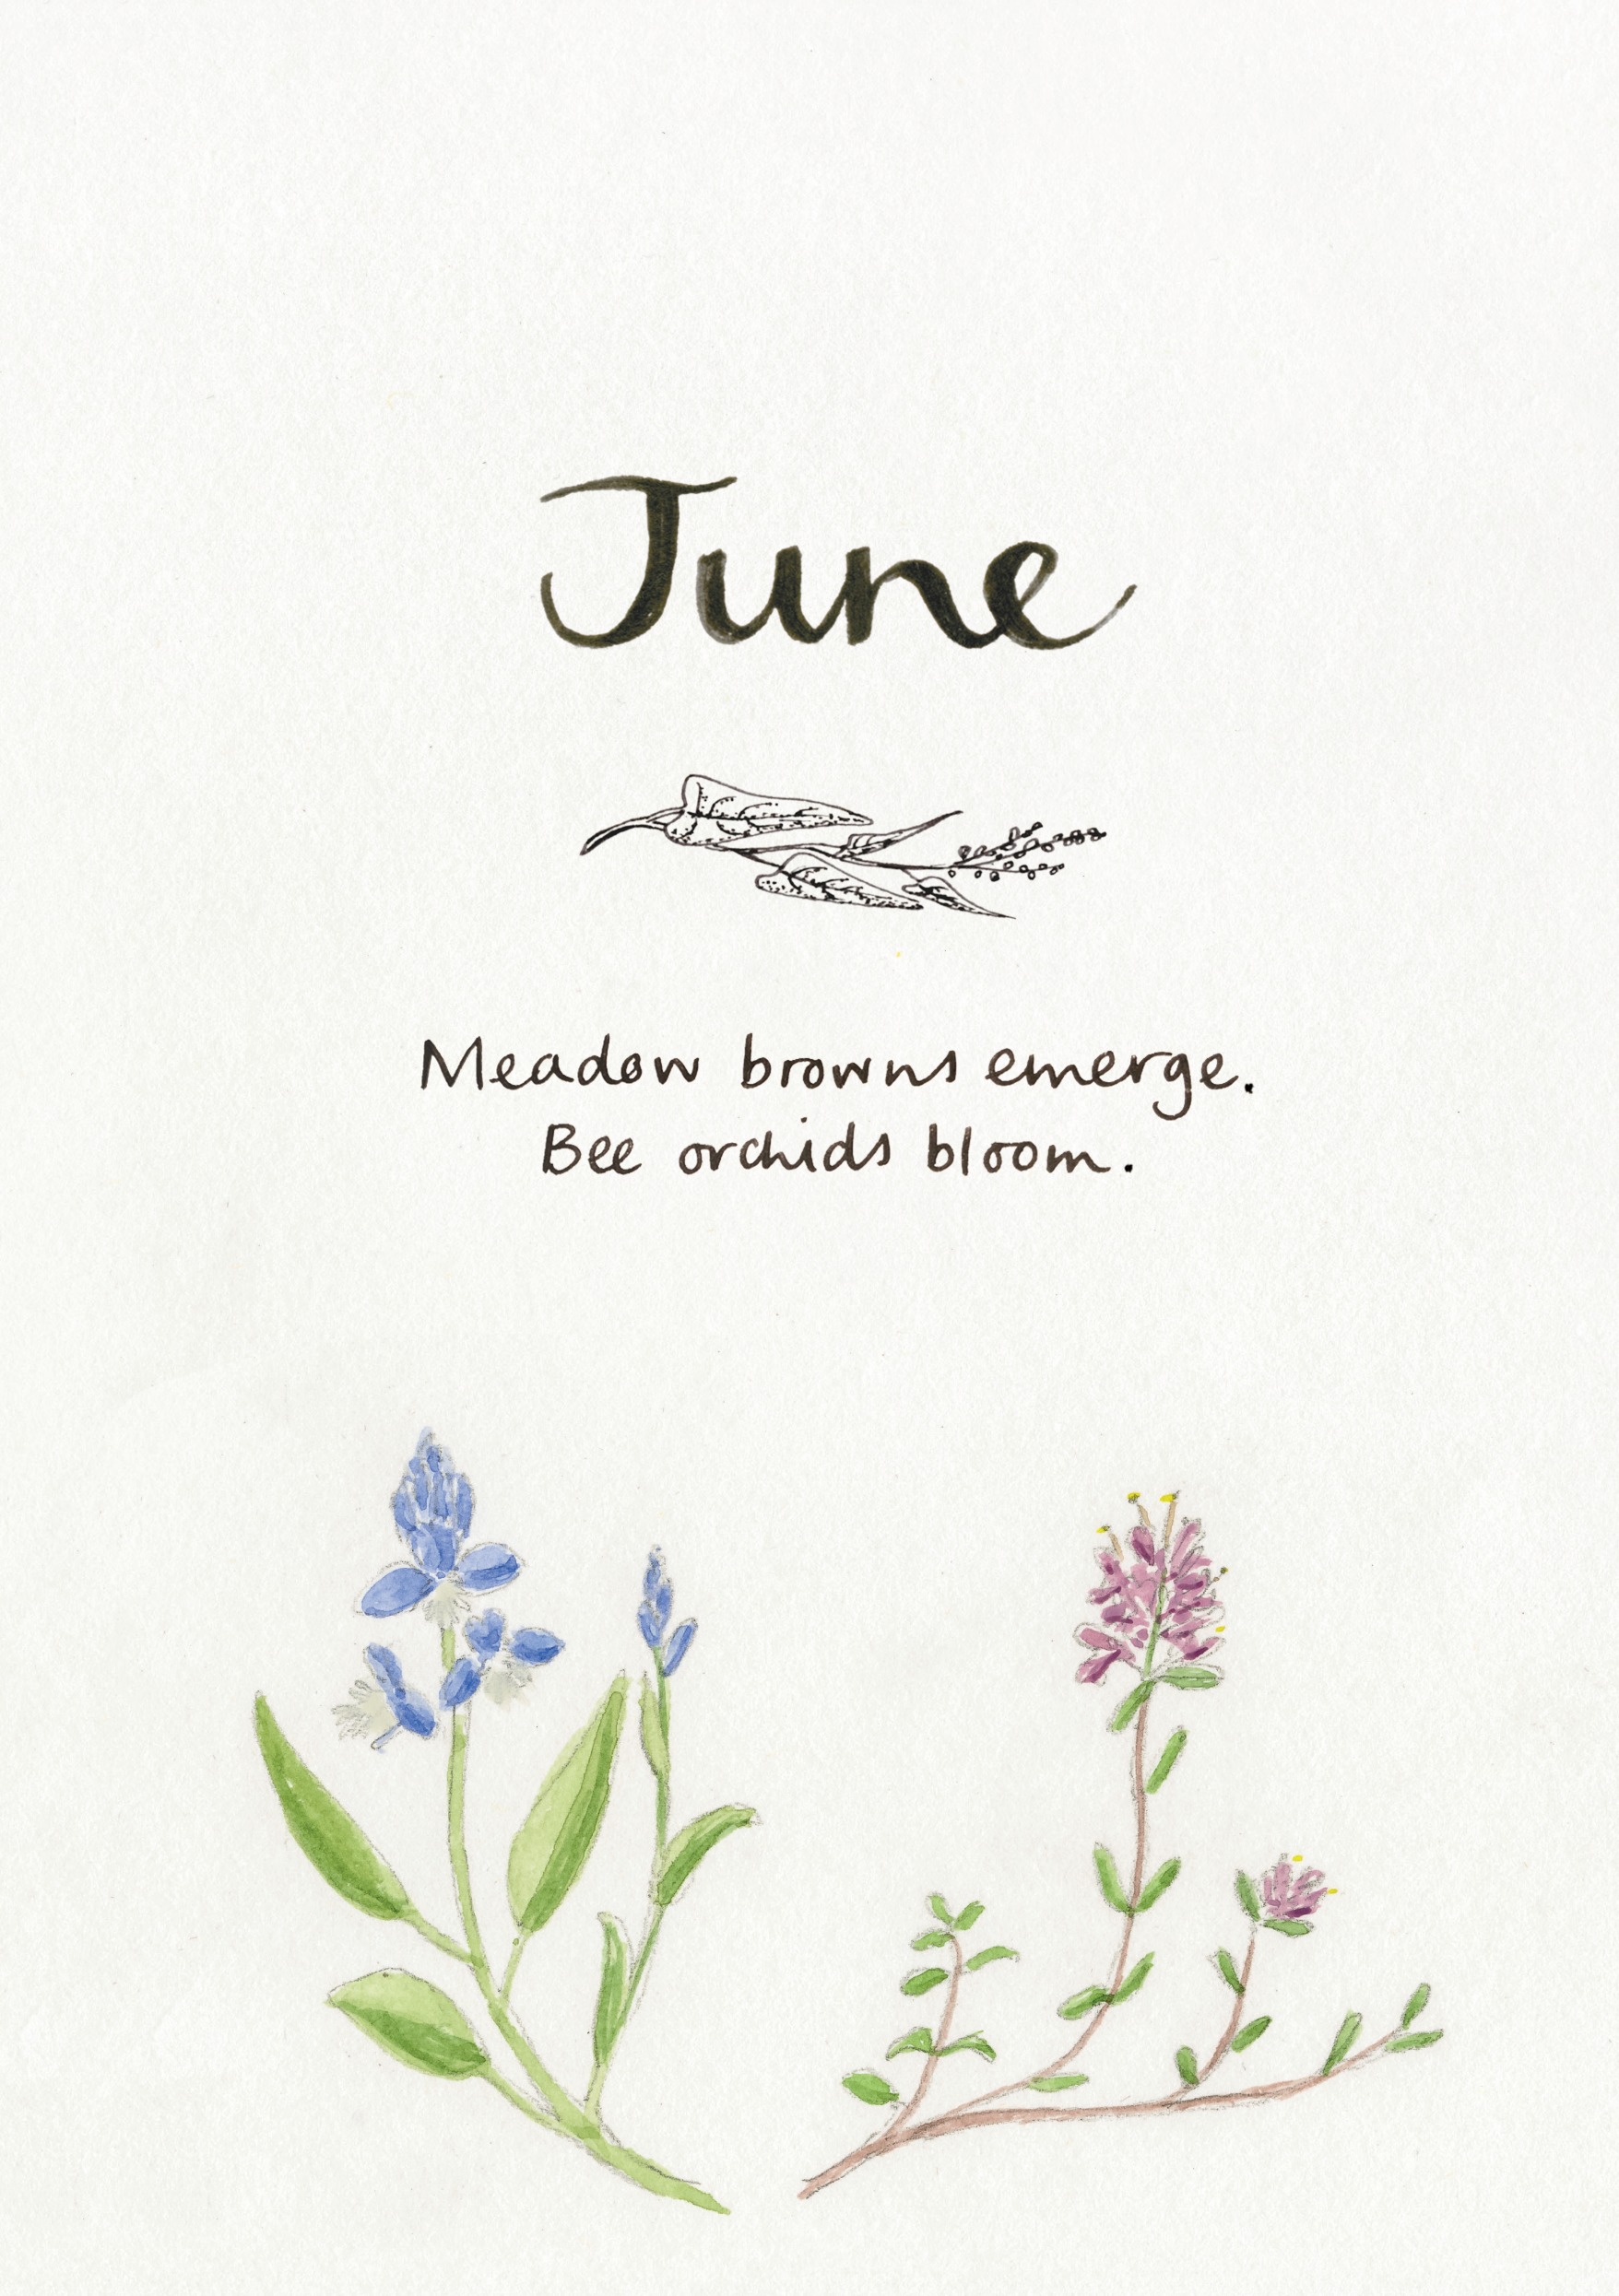 June
Meadow browns emerge.
Bee orchids bloom.